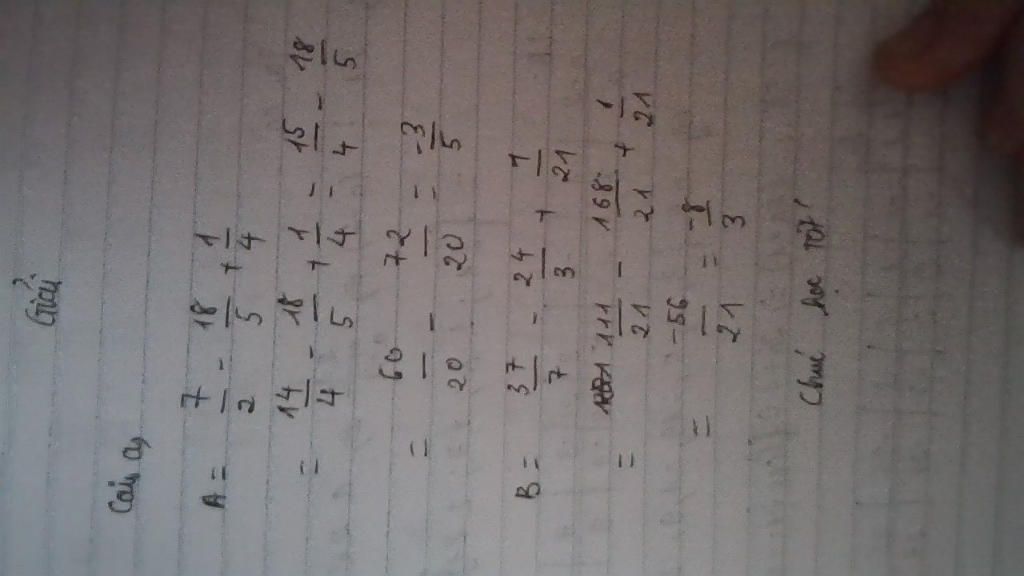 Giải
Câu a,
A = 7/2 - 18/5 + 1/4
= 14/4 - 18/5 + 1/4 = 15/4 - 18/5
= 60/20 - 72/20 = -3/5
B = 37/7 - 24/3 + 1/21
= 111/21 - 168/21 + 1/21
= -56/21 = -8/3
Chúc học tốt!